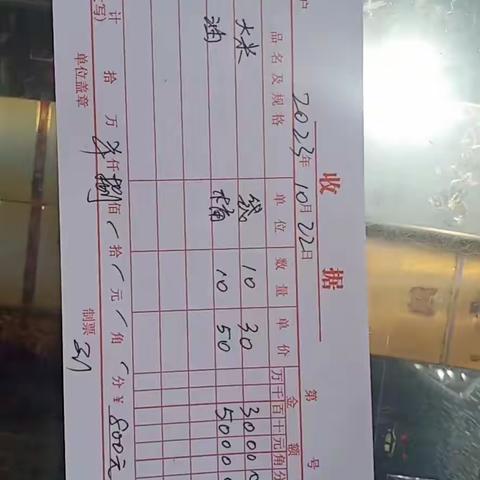 收据
2023年10月22日 第 号
户
品名及规格 单位 数量 单价 金额
万千百十元角分
大米 袋 10 30 30000
油 桶 10 50 5000
计 拾 万 仟 捌佰 拾 元 角 分 ¥ 800元
写)
单位盖章 制票